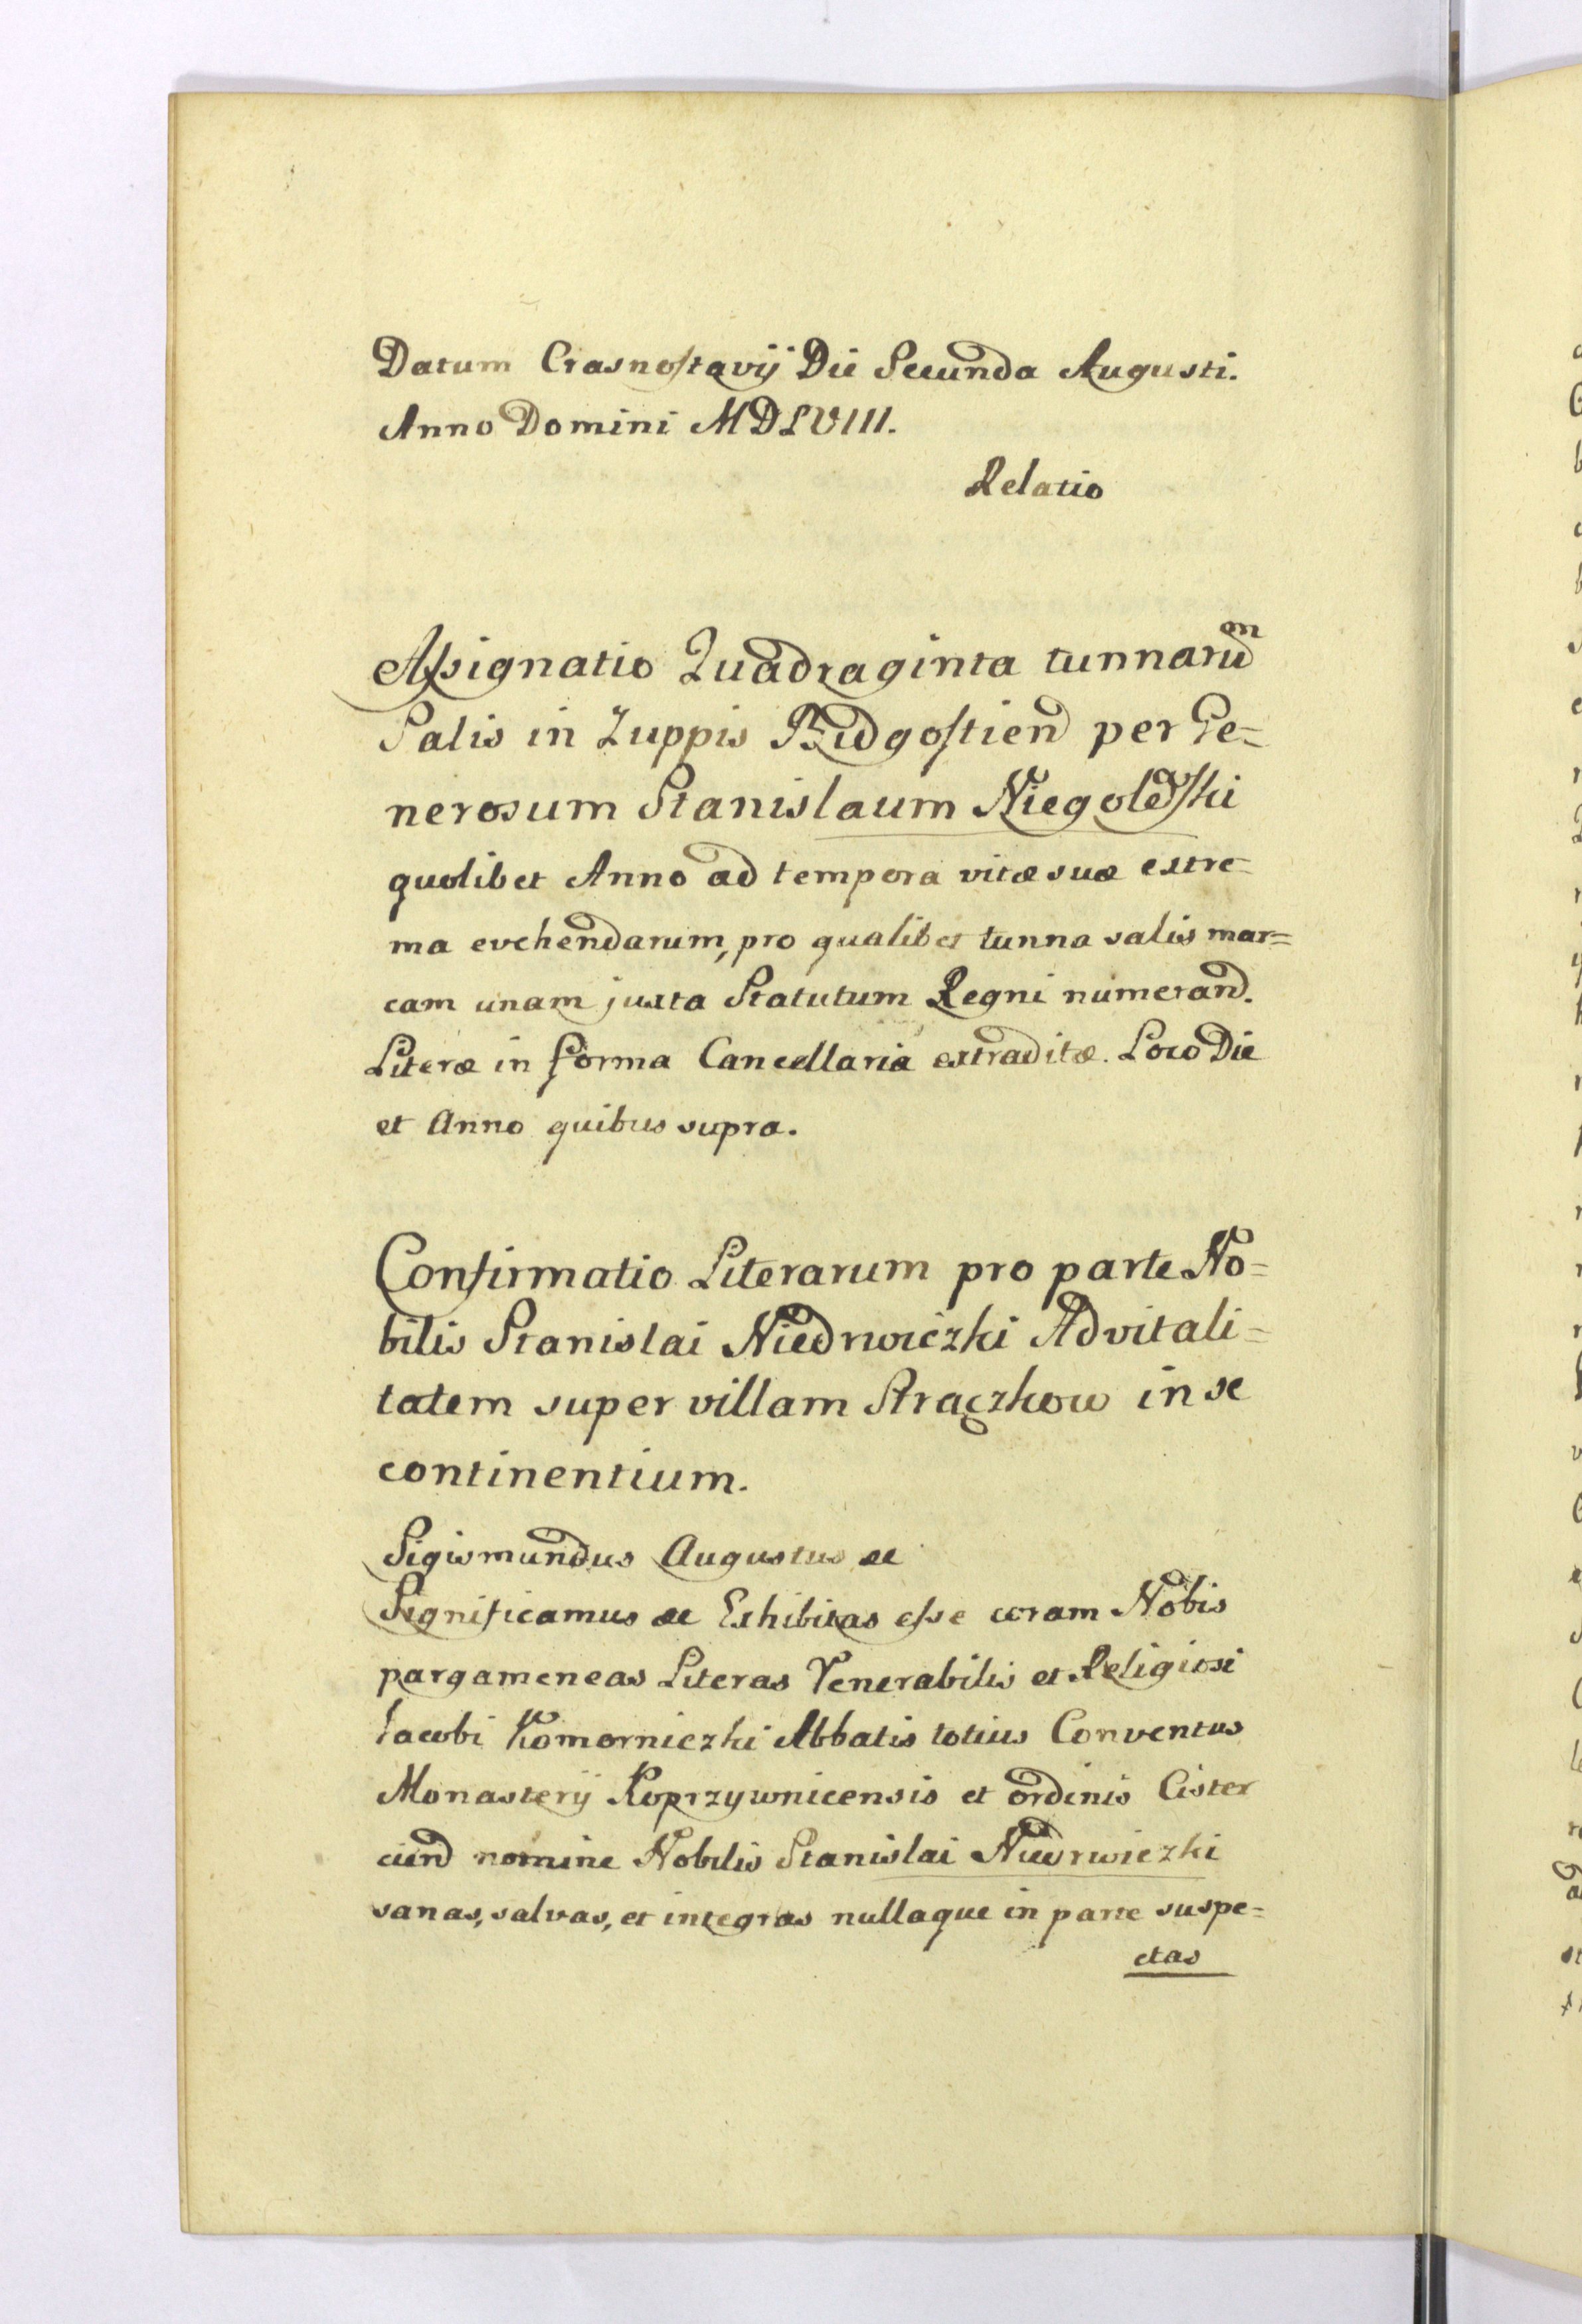 Datum Crasnostavij Die Secunda Augusti.
Anno Domini MDLVIII.
Relatio
Assignatio Quadraginta tunnarum
Salis in Zuppis Bidgostien per Ge=
nerosum Stanislaum Niegolewski
quolibet Anno ad tempora vitæ suæ extre=
ma evehendarum, pro qualibet tunna salis mar=
cam unam juxta Statutum Regni numerand.
Literæ in forma Cancellaria extraditæ. Loco Die
et Anno quibus supra.
Confirmatio Literarum pro parte No=
bilis Stanislai Niedrwiczki Advitali=
tatem super villam Strączkow in se
continentium.
Sigismundus Augustus &c
Significamus &c Exhibitas esse coram Nobis
pargameneas Literas Venerabilis et Religiosi
Iacobi Komorniczki Abbatis totius Conventus
Monasterij Koprzywnicensis et ordinis Cister
cien nomine Nobilis Stanislai Niedrwiczki
sanas, salvas, et integras nullaque in parte suspe=
ctas